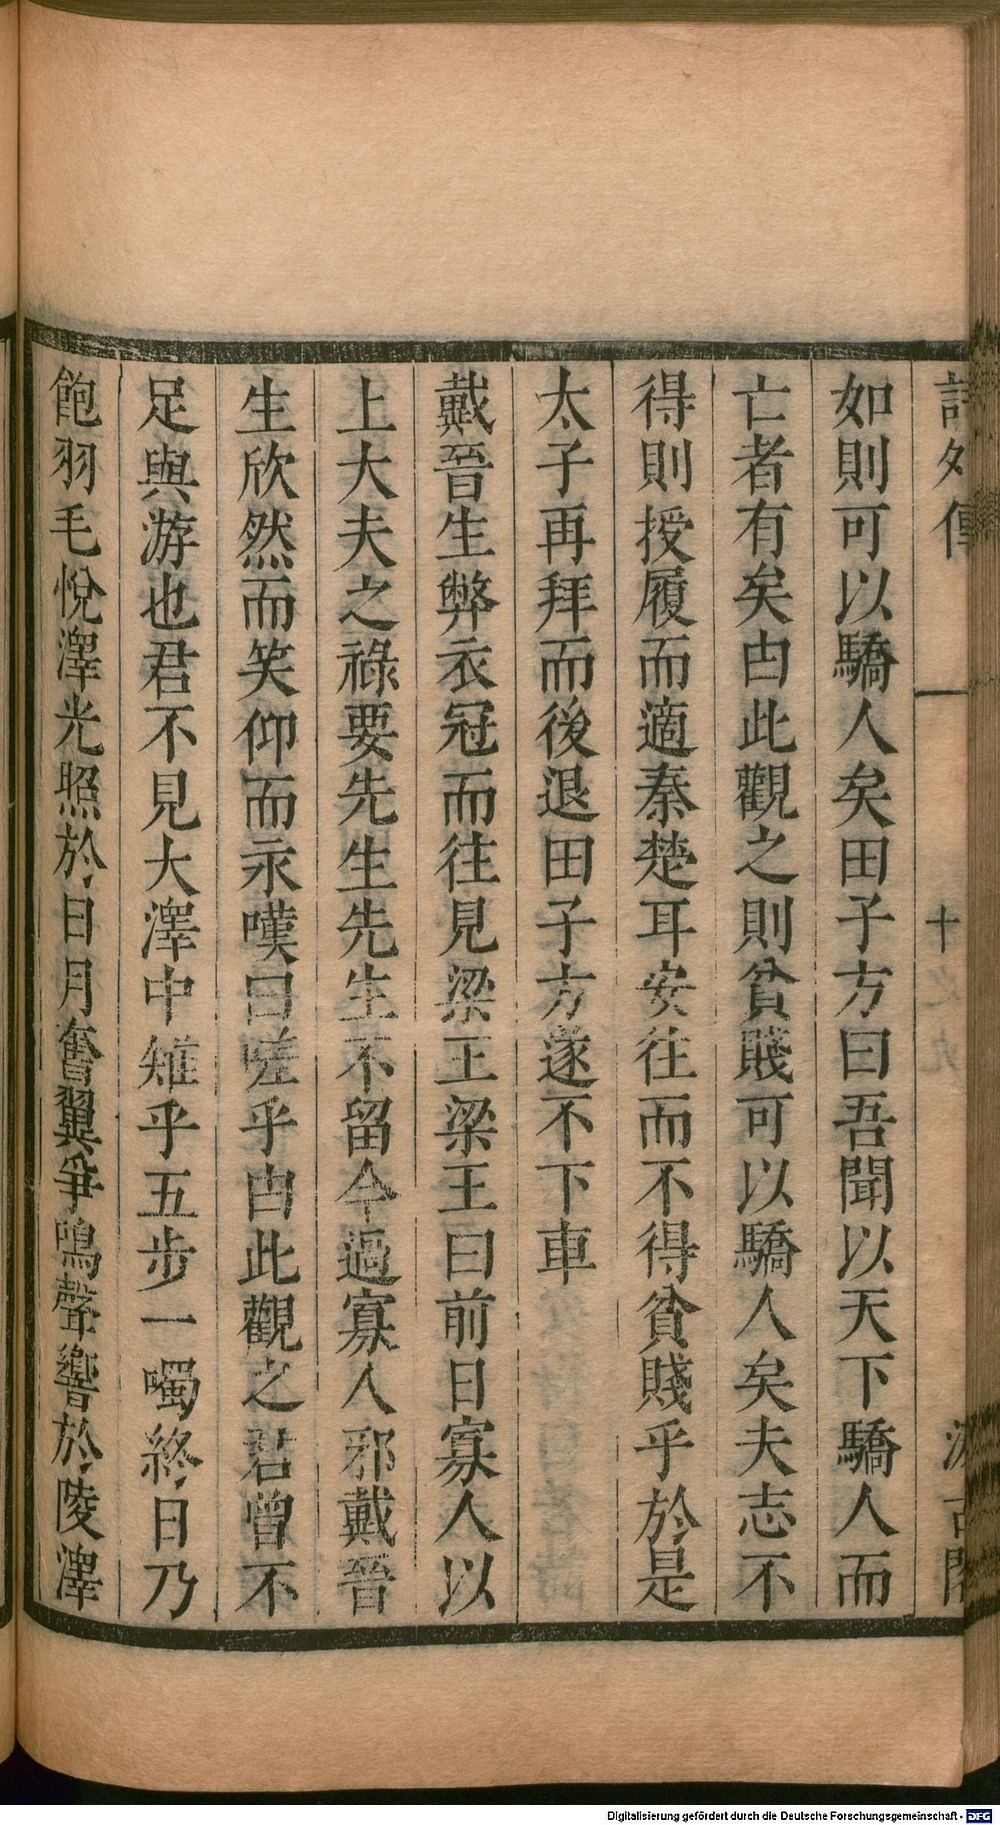 詩外傳 十
如則可以驕人矣田子方曰吾聞以天下驕人而
亡者有矣由此觀之則貧賤可以驕人矣夫志不
得則授履而適秦楚耳安往而不得貧賤乎於是
太子再拜而後退田子方遂不下車
戴晉生弊衣冠而往見梁王梁王曰前日寡人以
上大夫之祿要先生先生不留今過寡人邪戴晉
生欣然而笑仰而永嘆曰嗟乎由此觀之君曾不
足與游也君不見大澤中雉乎五步一噣終日乃
飽羽毛悅澤光照於日月奮翼爭鳴聲響於陵澤
Digitalisierung gefördert durch die Deutsche Forschungsgemeinschaft - DFG